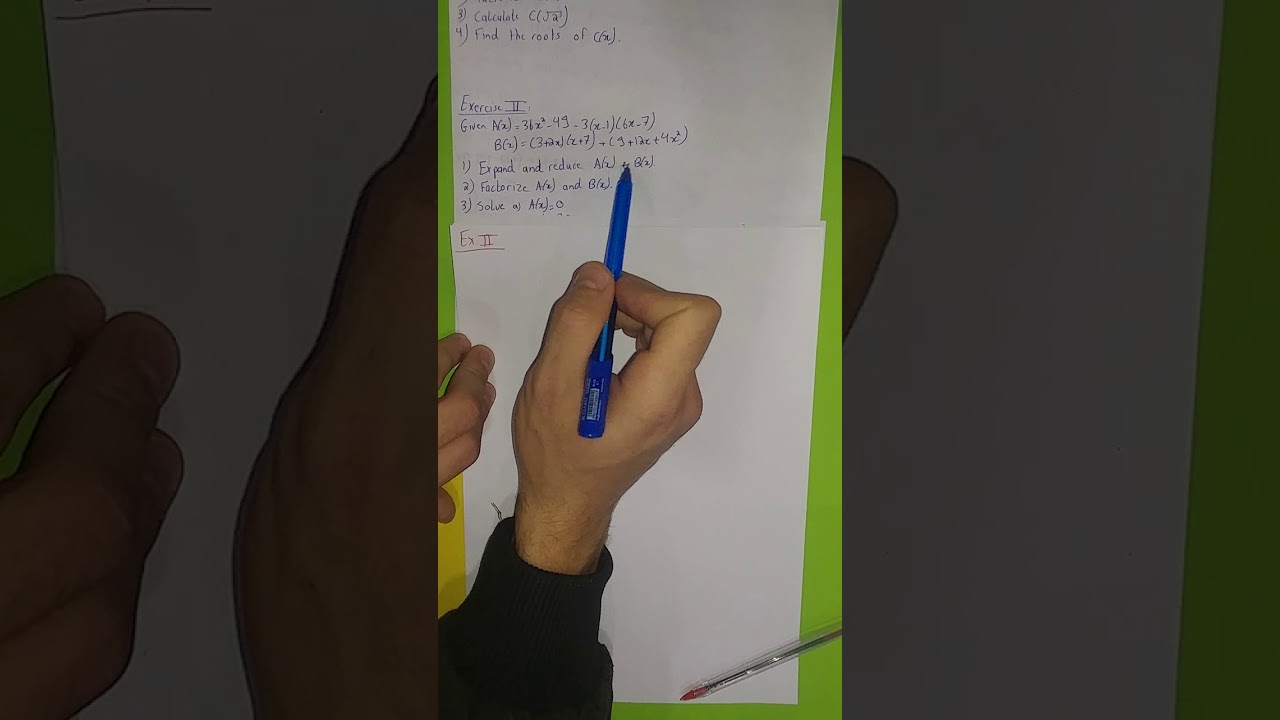 3) Calculate C(√2)
4) Find the roots of C(x).
Exercise II:
Given A(x) = 36x² - 49 - 3(x-1)(6x-7)
B(x) = (3+2x)(x+7) + (9+12x+4x²)
1) Expand and reduce A(x) B(x).
2) Factorize A(x) and B(x).
3) Solve A(x)=0
Ex II